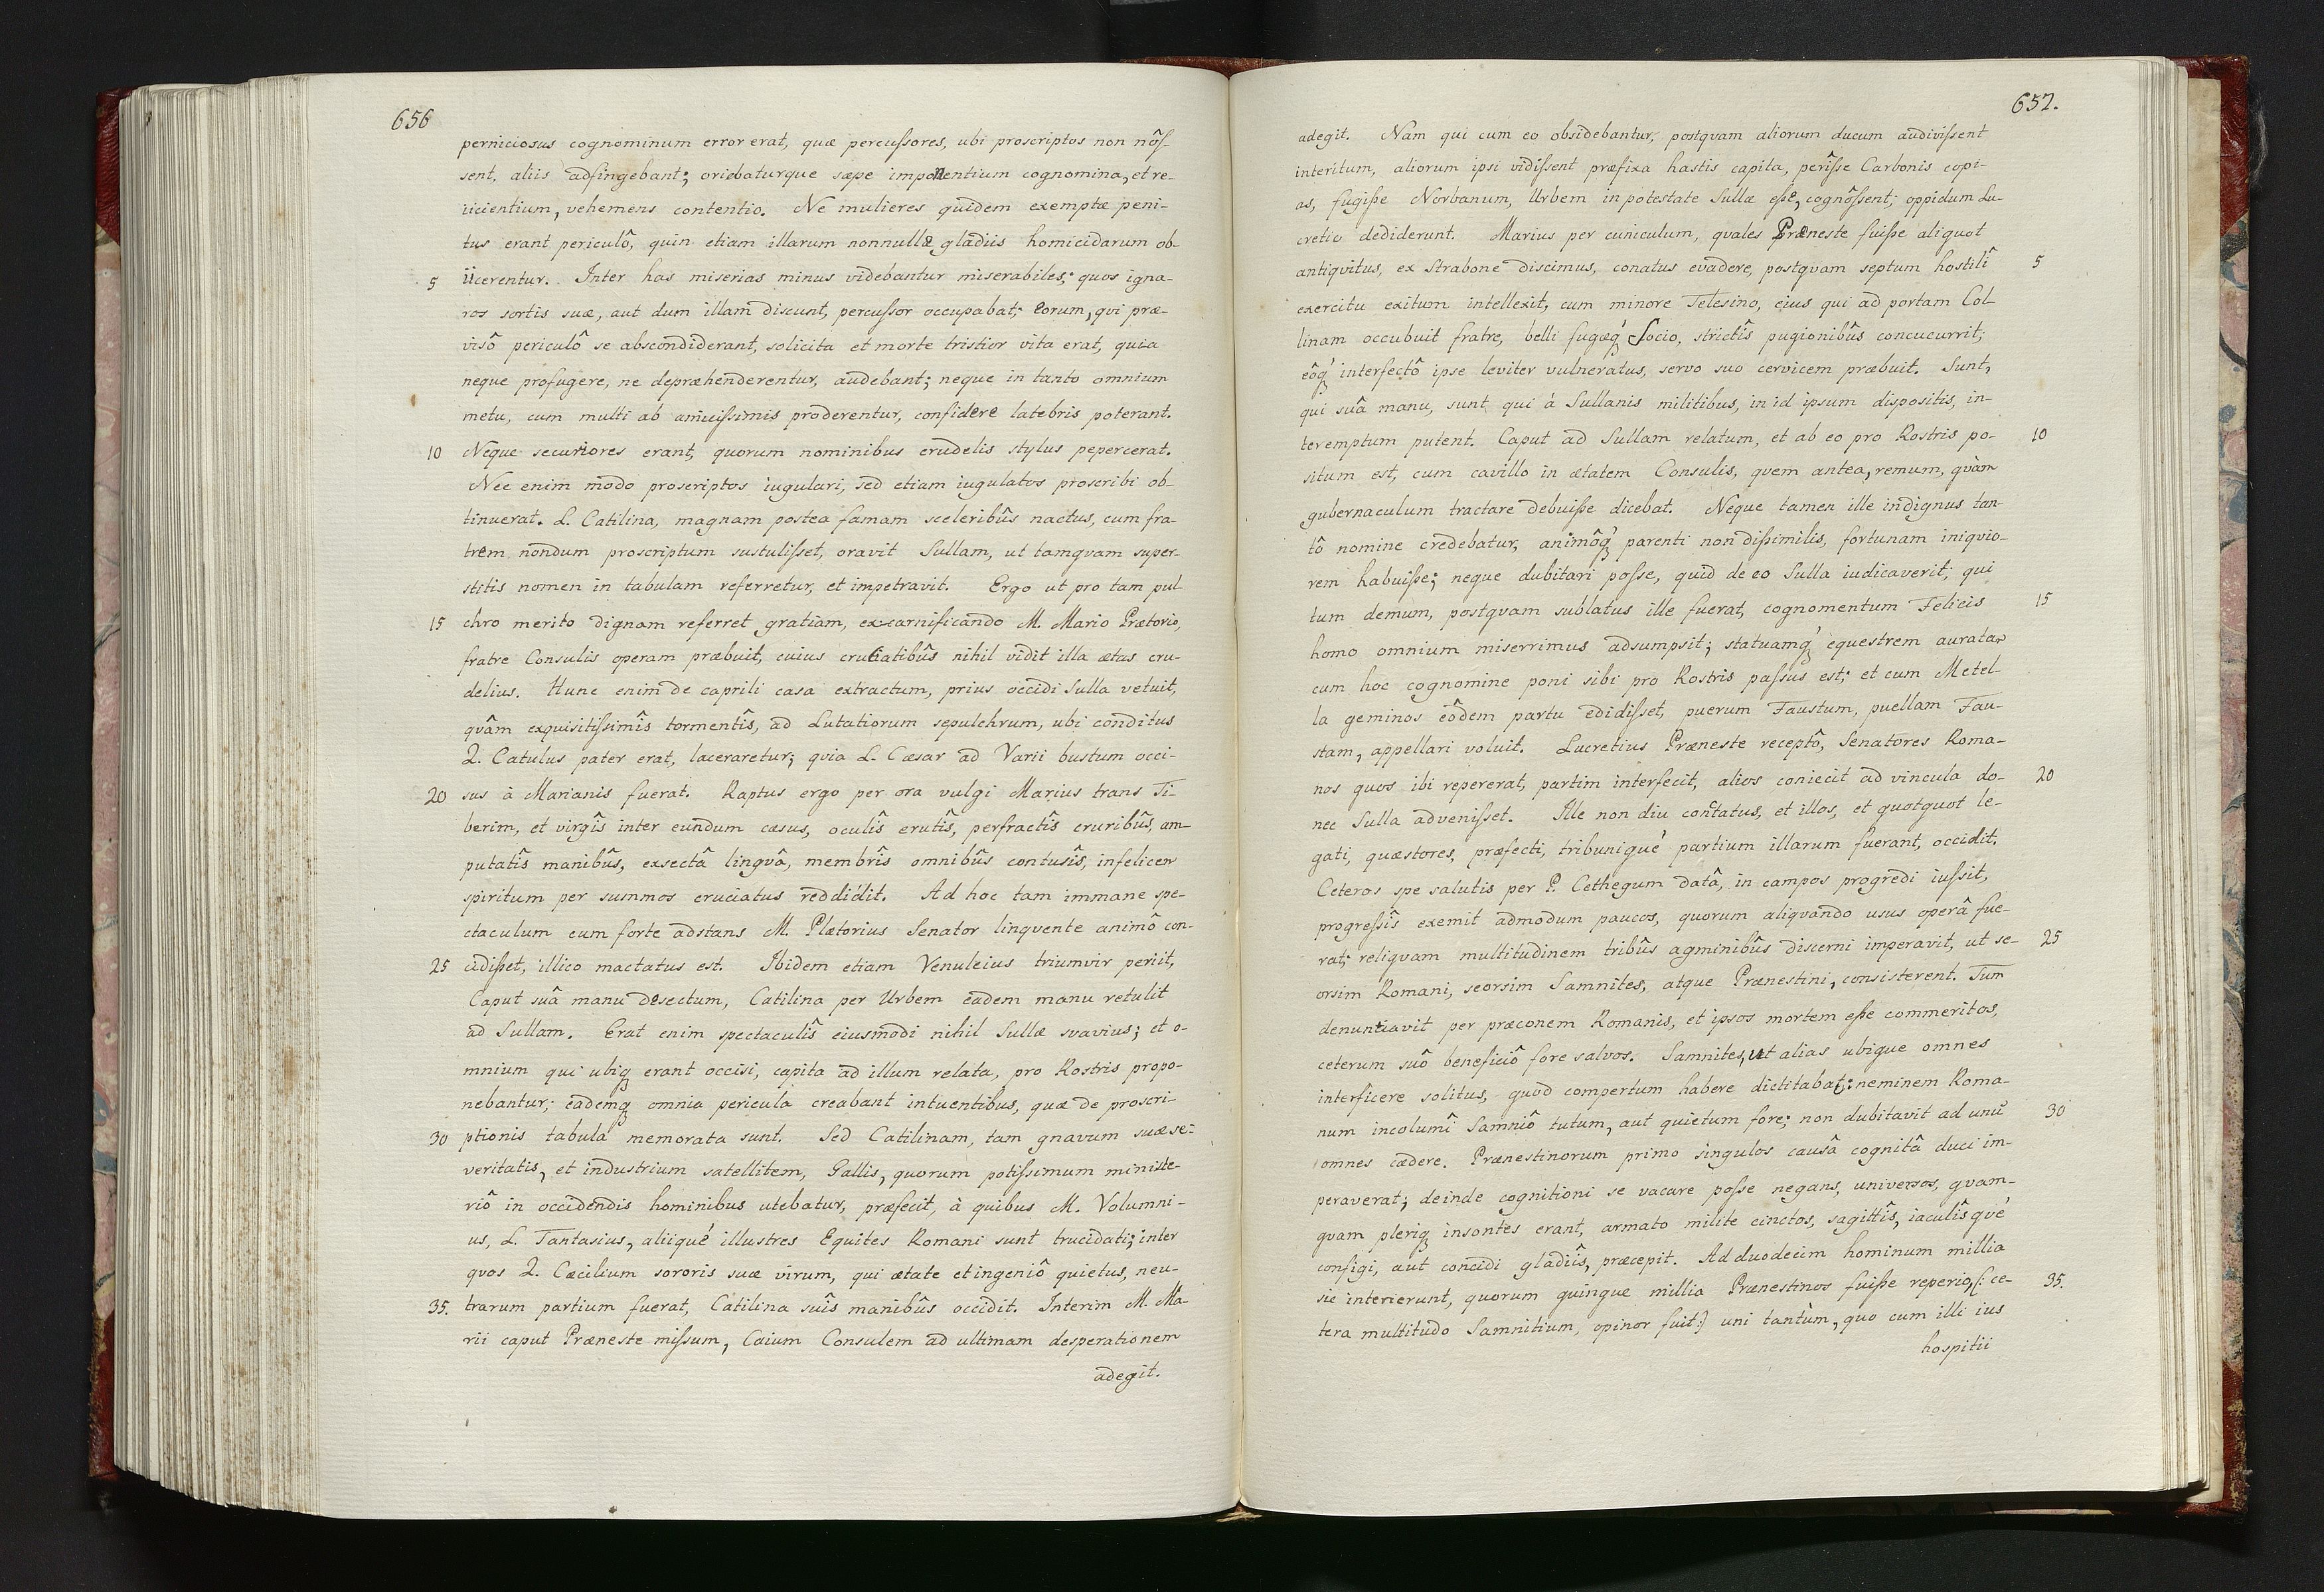 656
perniciosus cognominum error erat, quæ percussores, ubi proscriptos non nôs-
sent, aliis adfingebant; oriebaturque sæpe imponentium cognomina, et re-
iicientium, vehemens contentio. Ne mulieres quidem exemptæ peni-
tus erant periculô, quin etiam illarum nonnullæ gladiis homicidarum ob-
5 iicerentur. Inter has miserias minus videbantur miserabiles; quos igna-
ros sortis suæ, aut dum illam discunt, percussor occupabat; eorum, qvi præ-
visô periculô se absconderant, solicita et morte tristior vita erat, quia
neque profugere, ne depræhenderentur, audebant; neque in tanto omnium
metu, cum multi ab amicissimis proderentur, confidere latebris poterant.
10 Neque securiores erant, quorum nominibus crudelis stylus pepercerat.
Nec enim modo proscriptos iugulari, sed etiam iugulatos proscribi ob-
tinuerat. L. Catilina, magnam postea famam sceleribûs nactus, cum fra-
trem nondum proscriptum sustulisset, oravit Sullam, ut tamqvam super-
stitis nomen in tabulam referretur, et impetravit. Ergo ut pro tam pul
15 chro merito dignam referret gratiam, excarnificando M. Mario Prætorio,
fratre Consulis operam præbuit, cuius cruciatibûs nihil vidit illa ætas cru-
delius. Hunc enim de caprili casa extractum, prius occidi Sulla vetuit,
qvâm exquisitissimîs tormentîs, ad Lutatiorum sepulchrum, ubi conditus
Q. Catulus pater erat, laceraretur; qvia L. Cæsar ad Varii bustum occi-
20 sus à Marianis fuerat. Raptus ergo per ora vulgi Marius trans Ti-
berim, et virgîs inter eundum cæsus, oculîs erutîs, perfractîs cruribûs, am-
putatîs manibûs, exsectâ lingvâ, membrîs omnibûs contusîs, infelicem
spiritum per summos cruciatus reddidit. Ad hoc tam immane spe-
ctaculum cum forte adstans M. Plætorius Senator linqvente animô con-
25 cidisset, illico mactatus est. Ibidem etiam Venuleius triumvir periit,
Caput suâ manu desectum, Catilina per Urbem eadem manu retulit
ad Sullam. Erat enim spectaculîs eiusmodi nihil Sullæ svavius; et o-
mnium qui ubiq erant occisi, capita ad illum relata, pro Rostris propo-
nebantur; eademq omnia pericula creabant intuentibus, quæ de proscri-
30 ptionis tabula memorata sunt. Sed Catilinam, tam gnavum suæ se-
veritatis, et industrium satellitem, Gallis, quorum potissimum ministe-
riô in occidendis hominibus utebatur, præfecit, à quibus M. Volumni-
us, L. Tantasius, aliiqué illustres Equites Romani sunt trucidati; inter
qvos Q. Cæcilium sororis suæ virum, qui ætate et ingeniô quietus, neu-
35. trarum partium fuerat, Catilina suîs manibûs occidit. Interim M. Ma-
rii caput Præneste missum, Caium Consulem ad ultimam desperationem
adegit.
657.
adegit. Nam qui cum eo obsidebantur, postqvam aliorum ducum audivissent
interitum, aliorum ipsi vidissent præfixa hastis capita, perîsse Carbonis copi-
as, fugisse Norbanum, Urbem in potestate Sullæ esse, cognôssent; oppidum Lu-
cretio dediderunt. Marius per cuniculum, qvales Præneste fuisse aliquot
antiqvitus, ex Strabone discimus, conatus evadere, postqvam septum hostili 5
exercitu exitum intellexit, cum minore Telesino, eius qui ad portam Col
linam occubuit fratre, belli fugæq́ Socio, strictîs pugionibûs concucurrit,
eôq́ interfectô ipse leviter vulneratus, servo suo cervicem præbuit. Sunt,
qui suâ manu, sunt qui à Sullanis militibus, in id ipsum dispositis, in-
teremptum putent. Caput ad Sullam relatum, et ab eo pro Rostris po- 10
situm est, cum cavillo in ætatem Consulis, qvem antea, remum, qvàm
gubernaculum tractare debuisse dicebat. Neque tamen ille indignus tan-
tô nomine credebatur, animôq́ parenti non dissimilis, fortunam iniqvio-
rem habuisse; neque dubitari posse, quid de eo Sulla iudicaverit, qui
tum demum, postqvam sublatus ille fuerat, cognomentum Felicis 15
homo omnium miserrimus adsumpsit; statuamq́ equestrem auratam
cum hoc cognomine poni sibi pro Rostris passus est; et cum Metel-
la geminos eôdem partu edidisset, puerum Faustum, puellam Fau-
stam, appellari voluit. Lucretius Præneste receptô, Senatores Roma-
nos quos ibi repererat, partim interfecit, alios coniecit ad vincula do- 20
nec Sulla advenisset. Ille non diu conctatus, et illos, et quotquot le-
gati, quæstores, præfecti, tribuniqué partium illarum fuerant, occidit.
Ceteros spe salutis per P. Cethegum datâ, in campos progredi iussit,
progressîs exemit admodum paucos, quorum aliqvando usus operâ fue-
rat; reliqvam multitudinem tribûs agminibûs discerni imperavit, ut se- 25
orsim Romani, seorsim Samnites, atque Prænestini, consisterent. Tum
denuntiavit per præconem Romanis, et ipsos mortem esse commeritos,
ceterum suô beneficiô fore salvos. Samnites, ut alias ubique omnes
interficere solitus, quod compertum habere dictitabat; neminem Roma-
num incolumî Samniô tutum, aut quietum fore; non dubitavit ad unū 30
omnes cædere. Prænestinorum primo singulos causâ cognitâ duci im-
peraverat; deinde cognitioni se vacare posse negans, universos, qvam-
qvam pleriq insontes erant, armato milite cinctos, sagittîs, iaculîsqué
configi, aut concidi gladiîs, præcepit. Ad duodecim hominum millia
sic interierunt, quorum quinque millia Prænestinos fuisse reperio, (: ce- 35.
tera multitudo Samnitium, opinor fuit:) uni tantùm, quo cum illi ius
hospitii